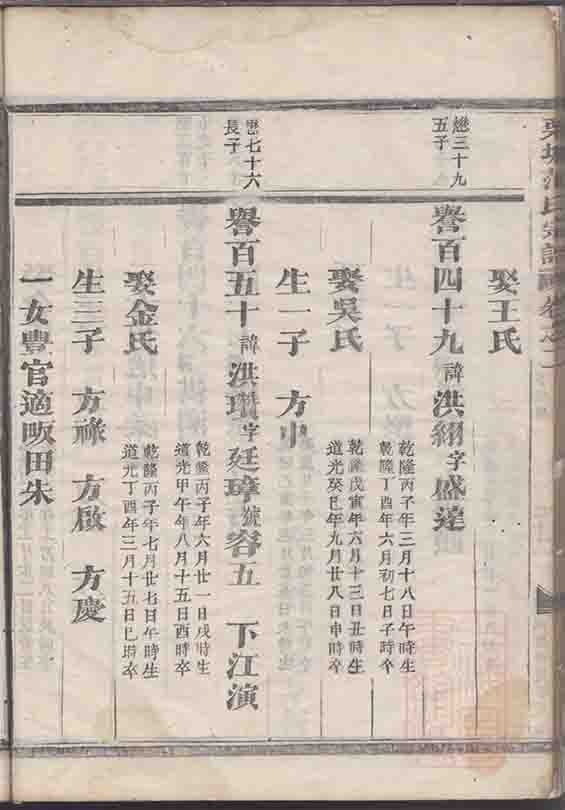 娶王氏
懋三十九
五子
譽百四十九 諱洪翔字盛達
乾隆丙子年三月十八日午時生
乾隆丁酉年六月初七日子時卒
娶吳氏
乾隆戊寅年六月十三日丑時生
道光癸巳年九月廿八日申時卒
生一子 方中
懋七十六
長子
譽百五十 諱洪瓚字廷璋號容五 下江演
乾隆丙子年六月廿一日戌時生
道光甲午年八月十五日酉時卒
娶金氏
乾隆丙子年七月廿七日午時生
道光丁酉年三月十五日巳時卒
生三子 方祿 方啟 方慶
一女豐官適畈田朱